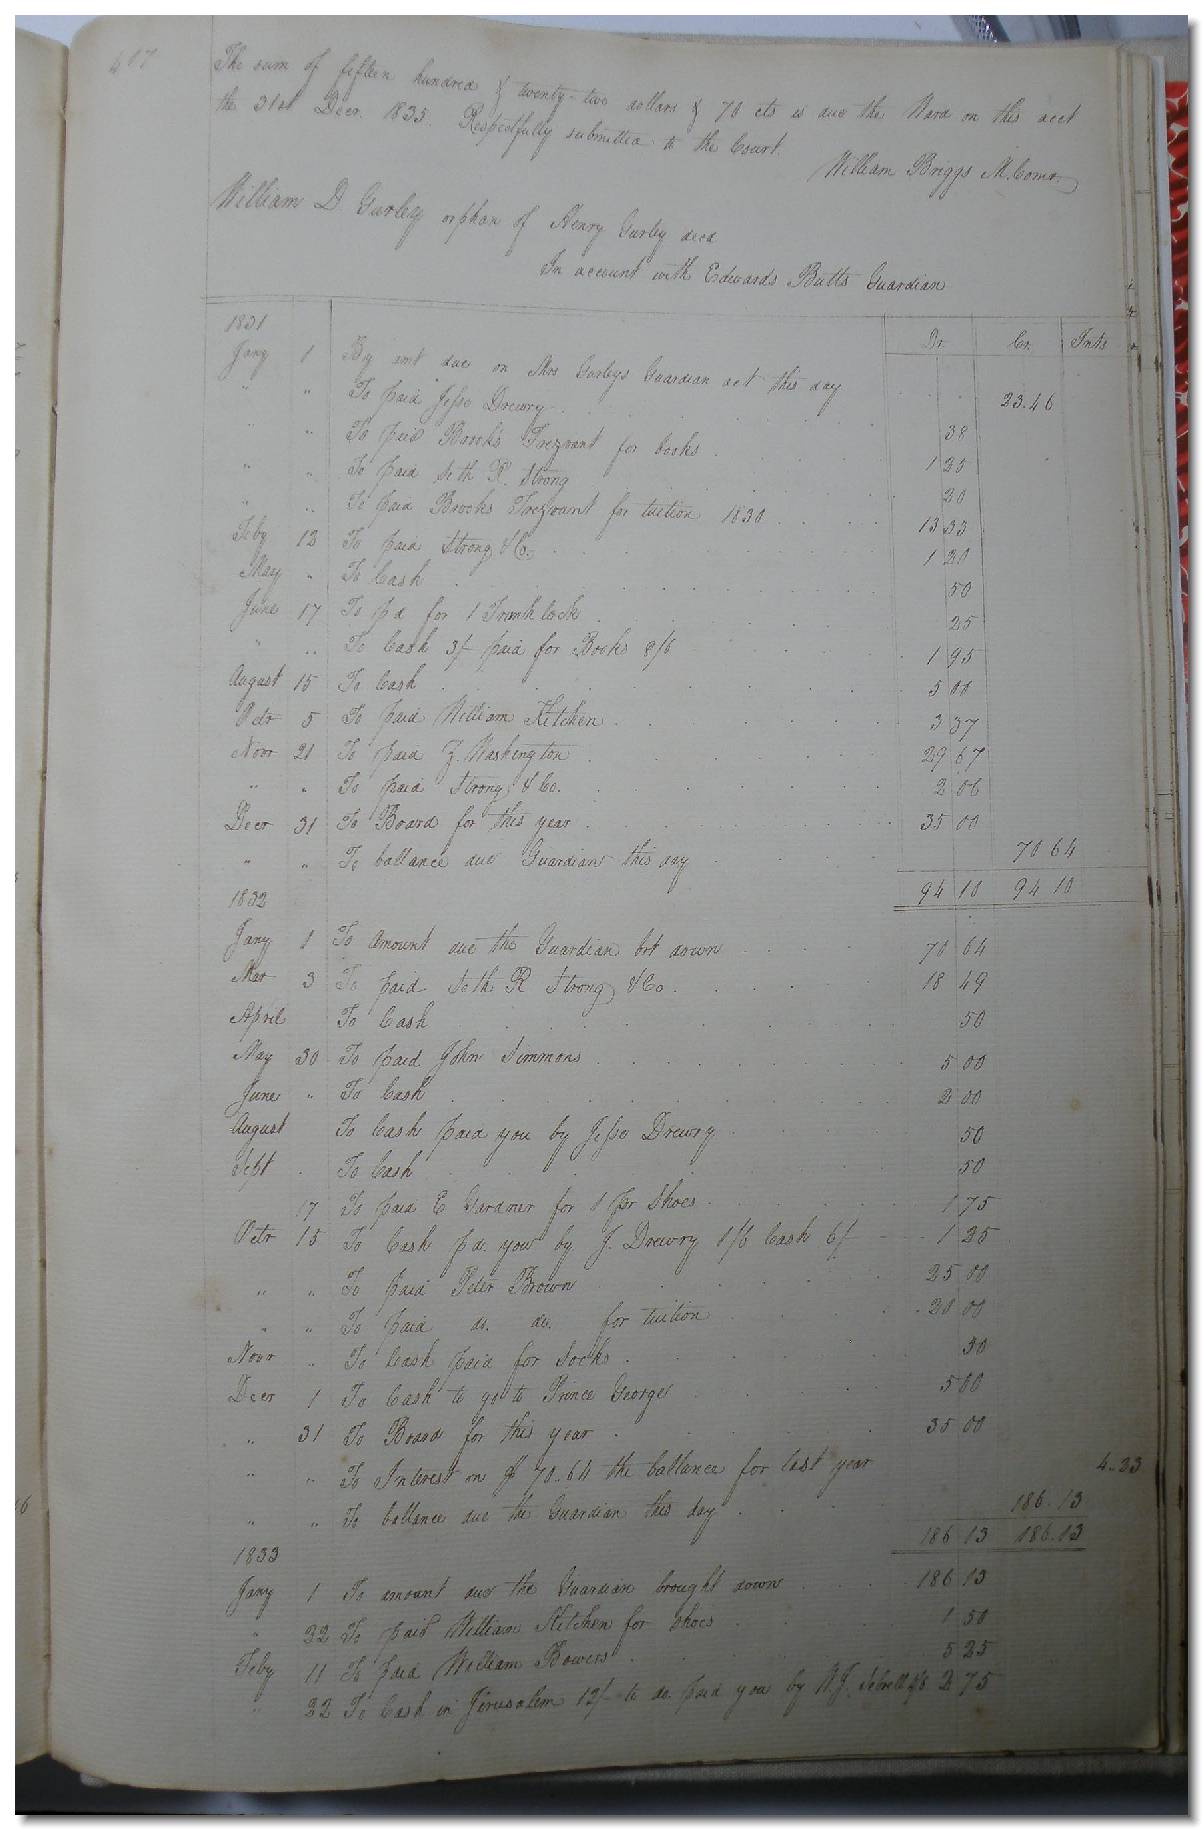 407
The sum of fifteen hundred & twenty-two dollars & 70 cts is due the Ward on this acct
the 31st Decr. 1835. Respectfully submitted to the Court.
William Briggs M. Comr.
William D Gurley orphan of Henry Gurley decd
In account with Edwards Butts Guardian
Dr. Cr. Ints
1831
Jany 1 By amt due on Mrs Gurleys Guardian act this day 23.46
" " To paid Jesse Drewry 38
" " To paid Brooks Trezvant for books 1 25
" " To paid Seth R. Strong 20
" " To paid Brooks Trezvant for tuition 1830 13 33
Feby 12 To paid Strong & Co. 1 20
May " To Cash 50
June 17 To pd for 1 Trunk lock 25
" " To Cash 3/ paid for Books 8/6 1 95
August 15 To Cash 5 00
Octr 5 To paid William Kitchen 3 37
Novr 21 To paid Z. Washington 29 67
" " To paid Strong & Co. 2 06
Decr 31 To Board for this year 35 00
" " To ballance due Guardian this day 70 64
94 10 94 10
1832
Jany 1 To Amount due the Guardian brt down 70 64
Mar 3 To paid Seth R Strong & Co. 18 49
April To Cash 50
May 30 To paid John Simmons 5 00
June " To Cash 2 00
August To Cash paid you by Jesse Drewry 50
Sept To Cash 50
17 To paid E Gardner for 1 pr Shoes 1 75
Octr 15 To Cash pd. you by J. Drewry 1/6 Cash 6/ 1 25
" " To paid Peter Brown 25 00
" " To paid do. do. for tuition 20 00
Novr " To Cash paid for Socks 50
Decr 1 To Cash to go to Prince George 5 00
" 31 To Board for this year 35 00
" " To Interest on $70.64 the ballance for last year 4.23
" " To ballance due the Guardian this day 186.13
186 13 186.13
1833
Jany 1 To amount due the Guardian brought down 186 13
" 22 To paid William Kitchen for shoes 1 50
Feby 11 To paid William Bowers 5 25
" 22 To Cash in Jerusalem 12/ to do. paid you by W.J. Sebrell 2 75